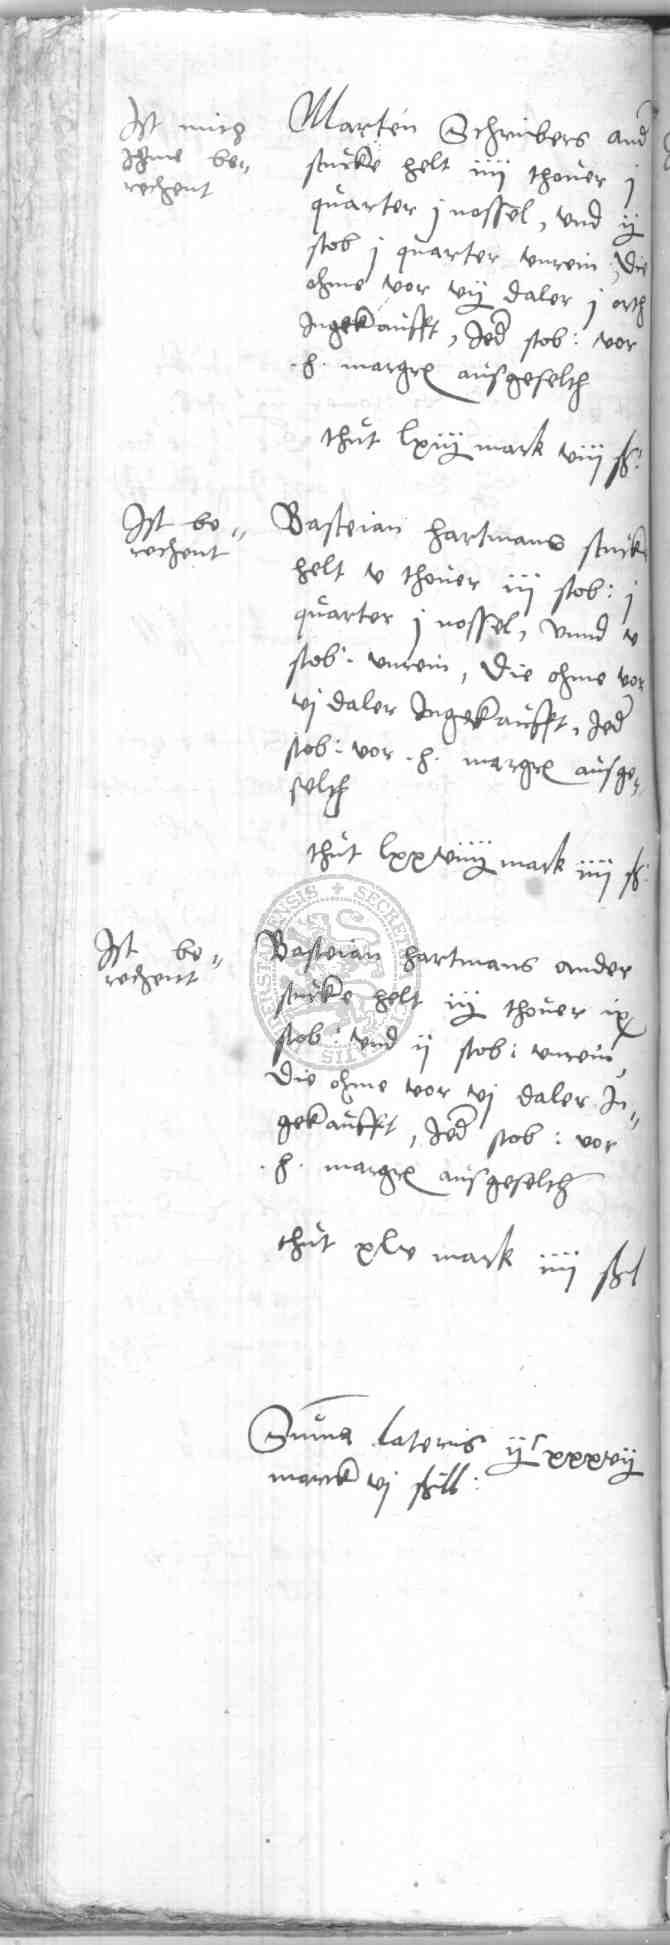 Ist mith
Ihme be„
rechent
Marten Schriebers and
stucke helt iiij thover j
quarter j nossel, vnd ij
stob j quarter vnrein, die
ohme vor vij daler j orth
Ingekaufft, Jed stob: vor
.h. margr ausgeselth
thut lxiij mark viij ß:
Ist be„
rechent
Bastian hartmans stucke
helt v thover iij stob: j
quarter j nossel, vnnd v
stob: vnrein, die ohme vor
vj daler Ingekaufft, Jed
stob: vor .h. margr ausge„
selth
thut lxxviiij mark iiij ß:
Ist be„
rechent
Bastian hartmans ander
stucke helt iij thover ix
stob: vnd ij stob: vnrein,
die ohme vor vj daler In„
gekaufft, Jed stob: vor
.h. margr ausgeselth
thut xlv mark iiij ßl
Suma lateris ijc xxxvij
marck vj ßll:
SECRET